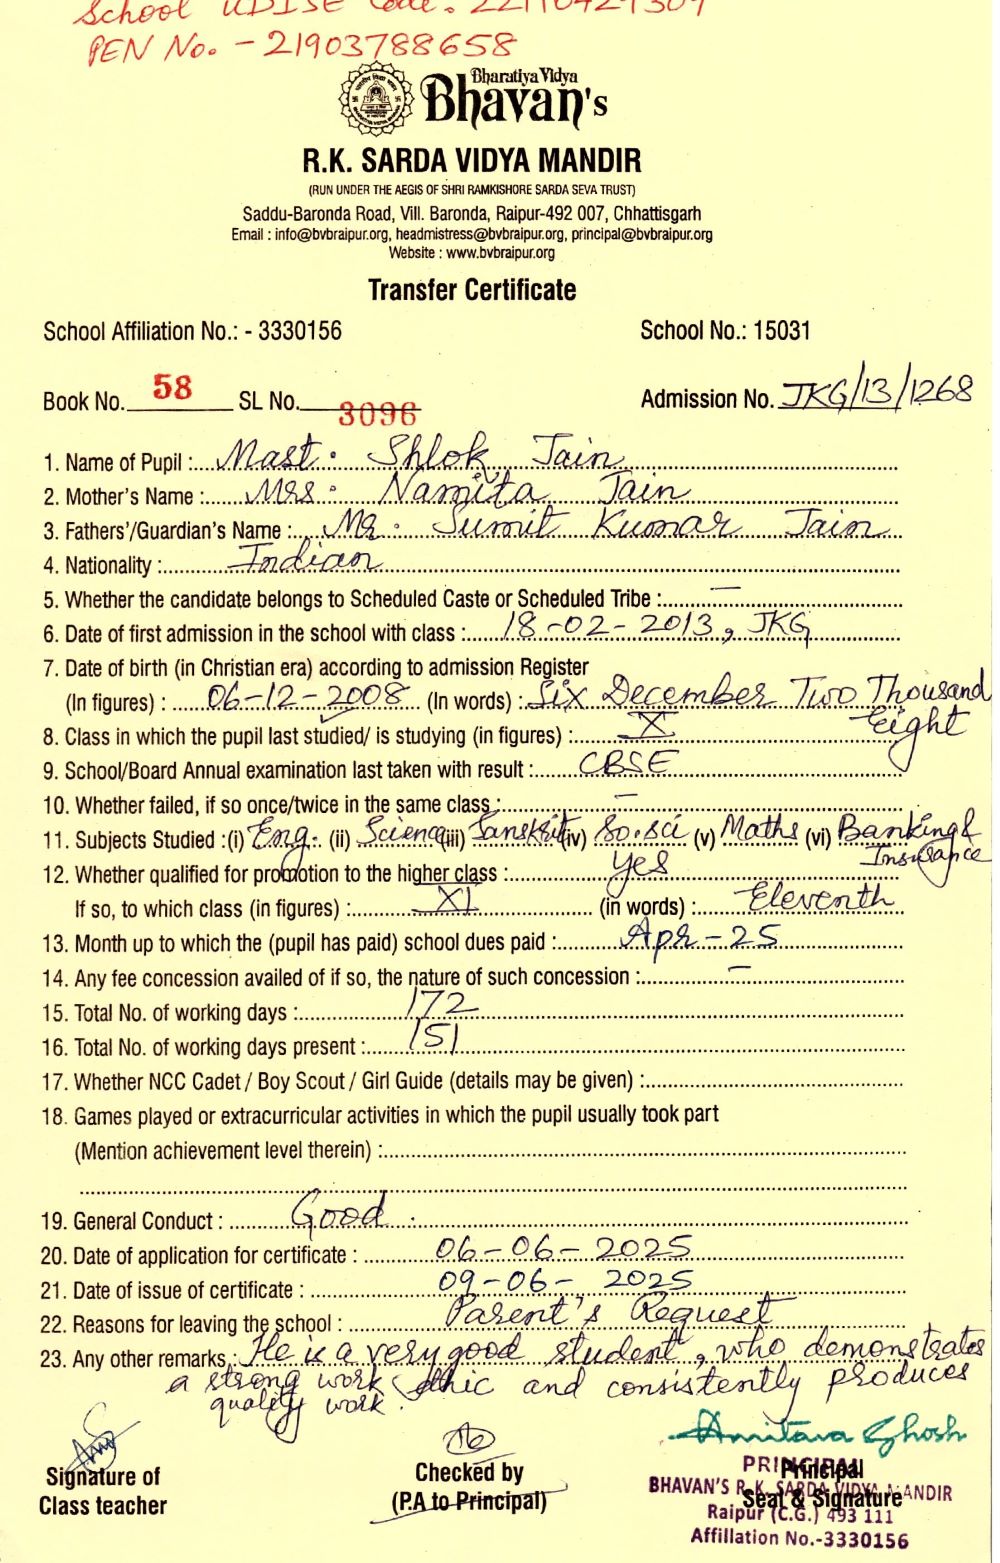 School UDISE Code. 22110429309
PEN No. - 21903788658
Bharatiya Vidya
Bhavan's
R.K. SARDA VIDYA MANDIR
(RUN UNDER THE AEGIS OF SHRI RAMKISHORE SARDA SEVA TRUST)
Saddu-Baronda Road, Vill. Baronda, Raipur-492 007, Chhattisgarh
Email : info@bvbraipur.org, headmistress@bvbraipur.org, principal@bvbraipur.org
Website : www.bvbraipur.org
Transfer Certificate
School Affiliation No.: - 3330156 School No.: 15031
Book No. 58 SL No. 3096 Admission No. JKG/13/1268
1. Name of Pupil : Mast. Shlok Jain
2. Mother's Name : Mrs. Namita Jain
3. Fathers'/Guardian's Name : Mr. Sumit Kumar Jain
4. Nationality : Indian
5. Whether the candidate belongs to Scheduled Caste or Scheduled Tribe : —
6. Date of first admission in the school with class : 18-02-2013, JKG
7. Date of birth (in Christian era) according to admission Register
(In figures) : 06-12-2008 (In words) : Six December Two Thousand
Eight
8. Class in which the pupil last studied/ is studying (in figures) : X
9. School/Board Annual examination last taken with result : CBSE
10. Whether failed, if so once/twice in the same class : —
11. Subjects Studied :(i) Eng. (ii) Science (iii) Sanskrit (iv) So.sci (v) Maths (vi) Banking &
Insurance
12. Whether qualified for promotion to the higher class : yes
If so, to which class (in figures) : XI (in words) : Eleventh
13. Month up to which the (pupil has paid) school dues paid : Apr-25
14. Any fee concession availed of if so, the nature of such concession : —
15. Total No. of working days : 172
16. Total No. of working days present : 151
17. Whether NCC Cadet / Boy Scout / Girl Guide (details may be given) :
18. Games played or extracurricular activities in which the pupil usually took part
(Mention achievement level therein) :
19. General Conduct : Good.
20. Date of application for certificate : 06-06-2025
21. Date of issue of certificate : 09-06-2025
22. Reasons for leaving the school : Parent's Request
23. Any other remarks : He is a very good student, who demonstrates
a strong work ethic and consistently produces
quality work.
Amitava Ghosh
Signature of
Class teacher
Checked by
(P.A to Principal)
Principal
Seal & Signature
PRINCIPAL
BHAVAN'S R.K. SARDA VIDYA MANDIR
Raipur (C.G.) 493 111
Affillation No.-3330156